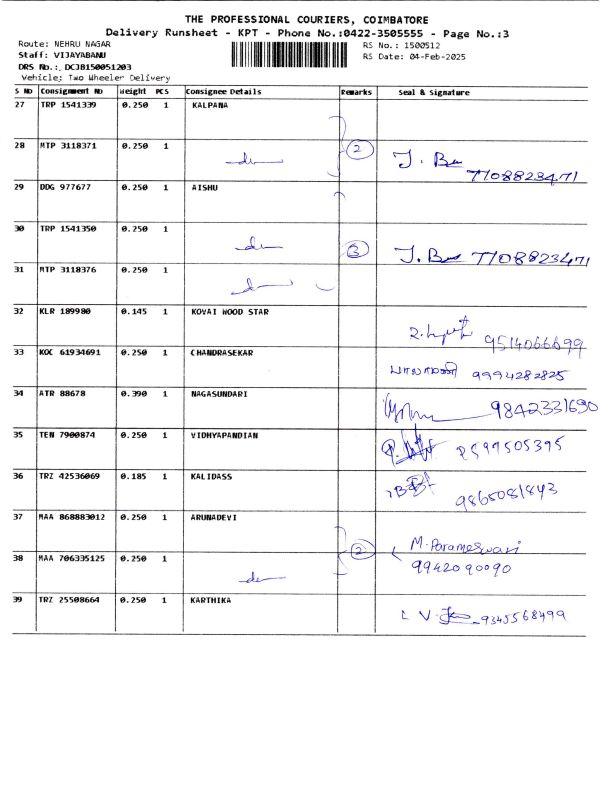 THE PROFESSIONAL COURIERS, COIMBATORE
Delivery Runsheet - KPT - Phone No.:0422-3505555 - Page No.:3
Route: NEHRU NAGAR RS No.: 1500512
Staff: VIJAYABANU RS Date: 04-Feb-2025
DRS No.: DCJB150051203
Vehicle: Two Wheeler Delivery
S NO Consignment No Weight PCS Consignee Details Remarks Seal & Signature
27 TRP 1541339 0.250 1 KALPANA
28 MTP 3118371 0.250 1 2 J. 7708823471
29 DDG 977677 0.250 1 AISHU
30 TRP 1541350 0.250 1 3 J. 7708823471
31 MTP 3118376 0.250 1
32 KLR 189980 0.145 1 KOVAI WOOD STAR 9514066699
33 KOC 61934691 0.250 1 CHANDRASEKAR பாலாமணி 9994282825
34 ATR 88678 0.390 1 NAGASUNDARI 9842331690
35 TEN 7900874 0.250 1 VIDHYAPANDIAN 8599505395
36 TRZ 42536069 0.185 1 KALIDASS 9865081843
37 MAA 868883012 0.250 1 ARUNADEVI M. Parameswari
38 MAA 706335125 0.250 1 2 9942090090
39 TRZ 25508664 0.250 1 KARTHIKA 9345568499